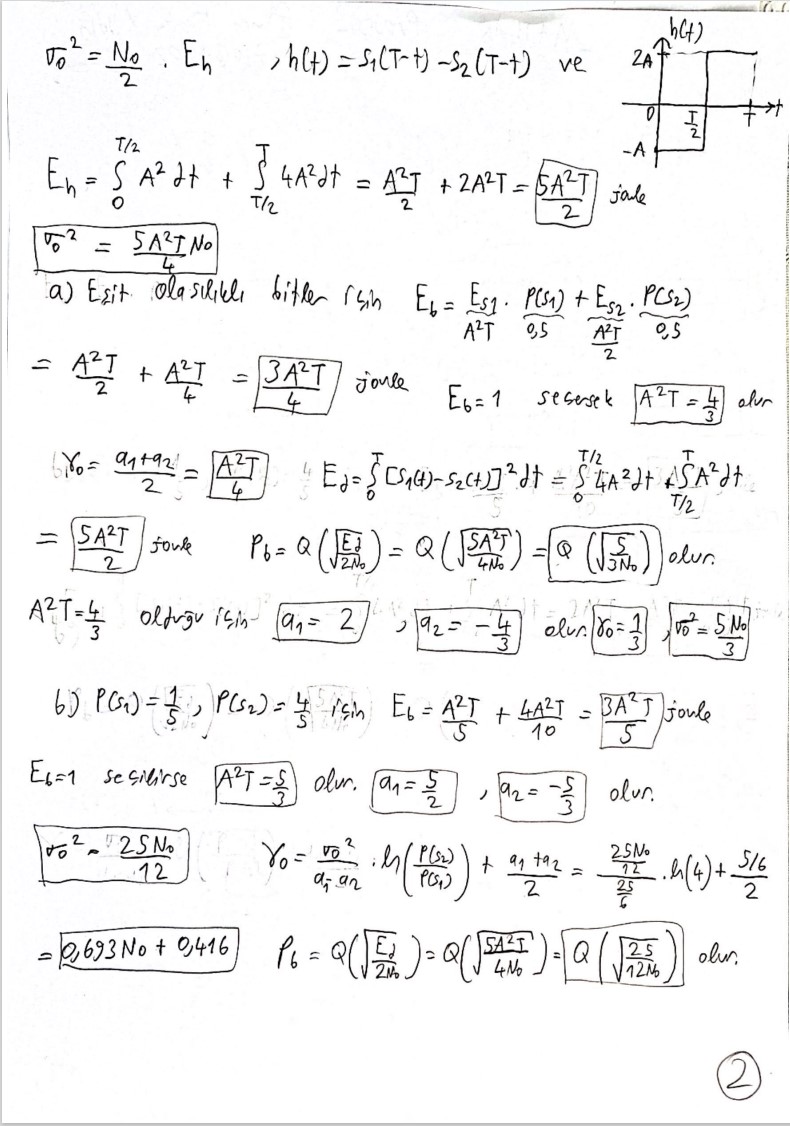 σ₀² = N₀/2 . Eₕ , h(t) = s₁(T-t) - s₂(T-t) ve
h(t)
2A
0 T/2 T t
-A
Eₕ = ∫₀^{T/2} A² dt + ∫_{T/2}^{T} 4A² dt = A²T/2 + 2A²T = 5A²T/2 joule
σ₀² = 5A²T N₀/4
a) Eşit olasılıklı bitler için E_b = E_{s1} . P(s₁) + E_{s2} . P(s₂)
A²T 0,5 A²T/2 0,5
= A²T/2 + A²T/4 = 3A²T/4 joule E_b = 1 seçersek A²T = 4/3 olur
γ₀ = (a₁+a₂)/2 = A²T/4 E_d = ∫₀^{T} [s₁(t)-s₂(t)]² dt = ∫₀^{T/2} 4A² dt + ∫_{T/2}^{T} A² dt
= 5A²T/2 joule P_b = Q(√(E_d/2N₀)) = Q(√(5A²T/4N₀)) = Q(√(5/3N₀)) olur.
A²T = 4/3 olduğu için a₁ = 2 , a₂ = -4/3 olur. γ₀ = 1/3 , σ₀² = 5N₀/3
b) P(s₁) = 1/5 , P(s₂) = 4/5 için E_b = A²T/5 + 4A²T/10 = 3A²T/5 joule
E_b = 1 seçilirse A²T = 5/3 olur. a₁ = 5/2 , a₂ = -5/3 olur.
σ₀² = 25N₀/12 γ₀ = σ₀²/(a₁-a₂) . ln(P(s₂)/P(s₁)) + (a₁+a₂)/2 = (25N₀/12)/(25/6) . ln(4) + (5/6)/2
= 0,693N₀ + 0,416 P_b = Q(√(E_d/2N₀)) = Q(√(5A²T/4N₀)) = Q(√(25/12N₀)) olur.
2